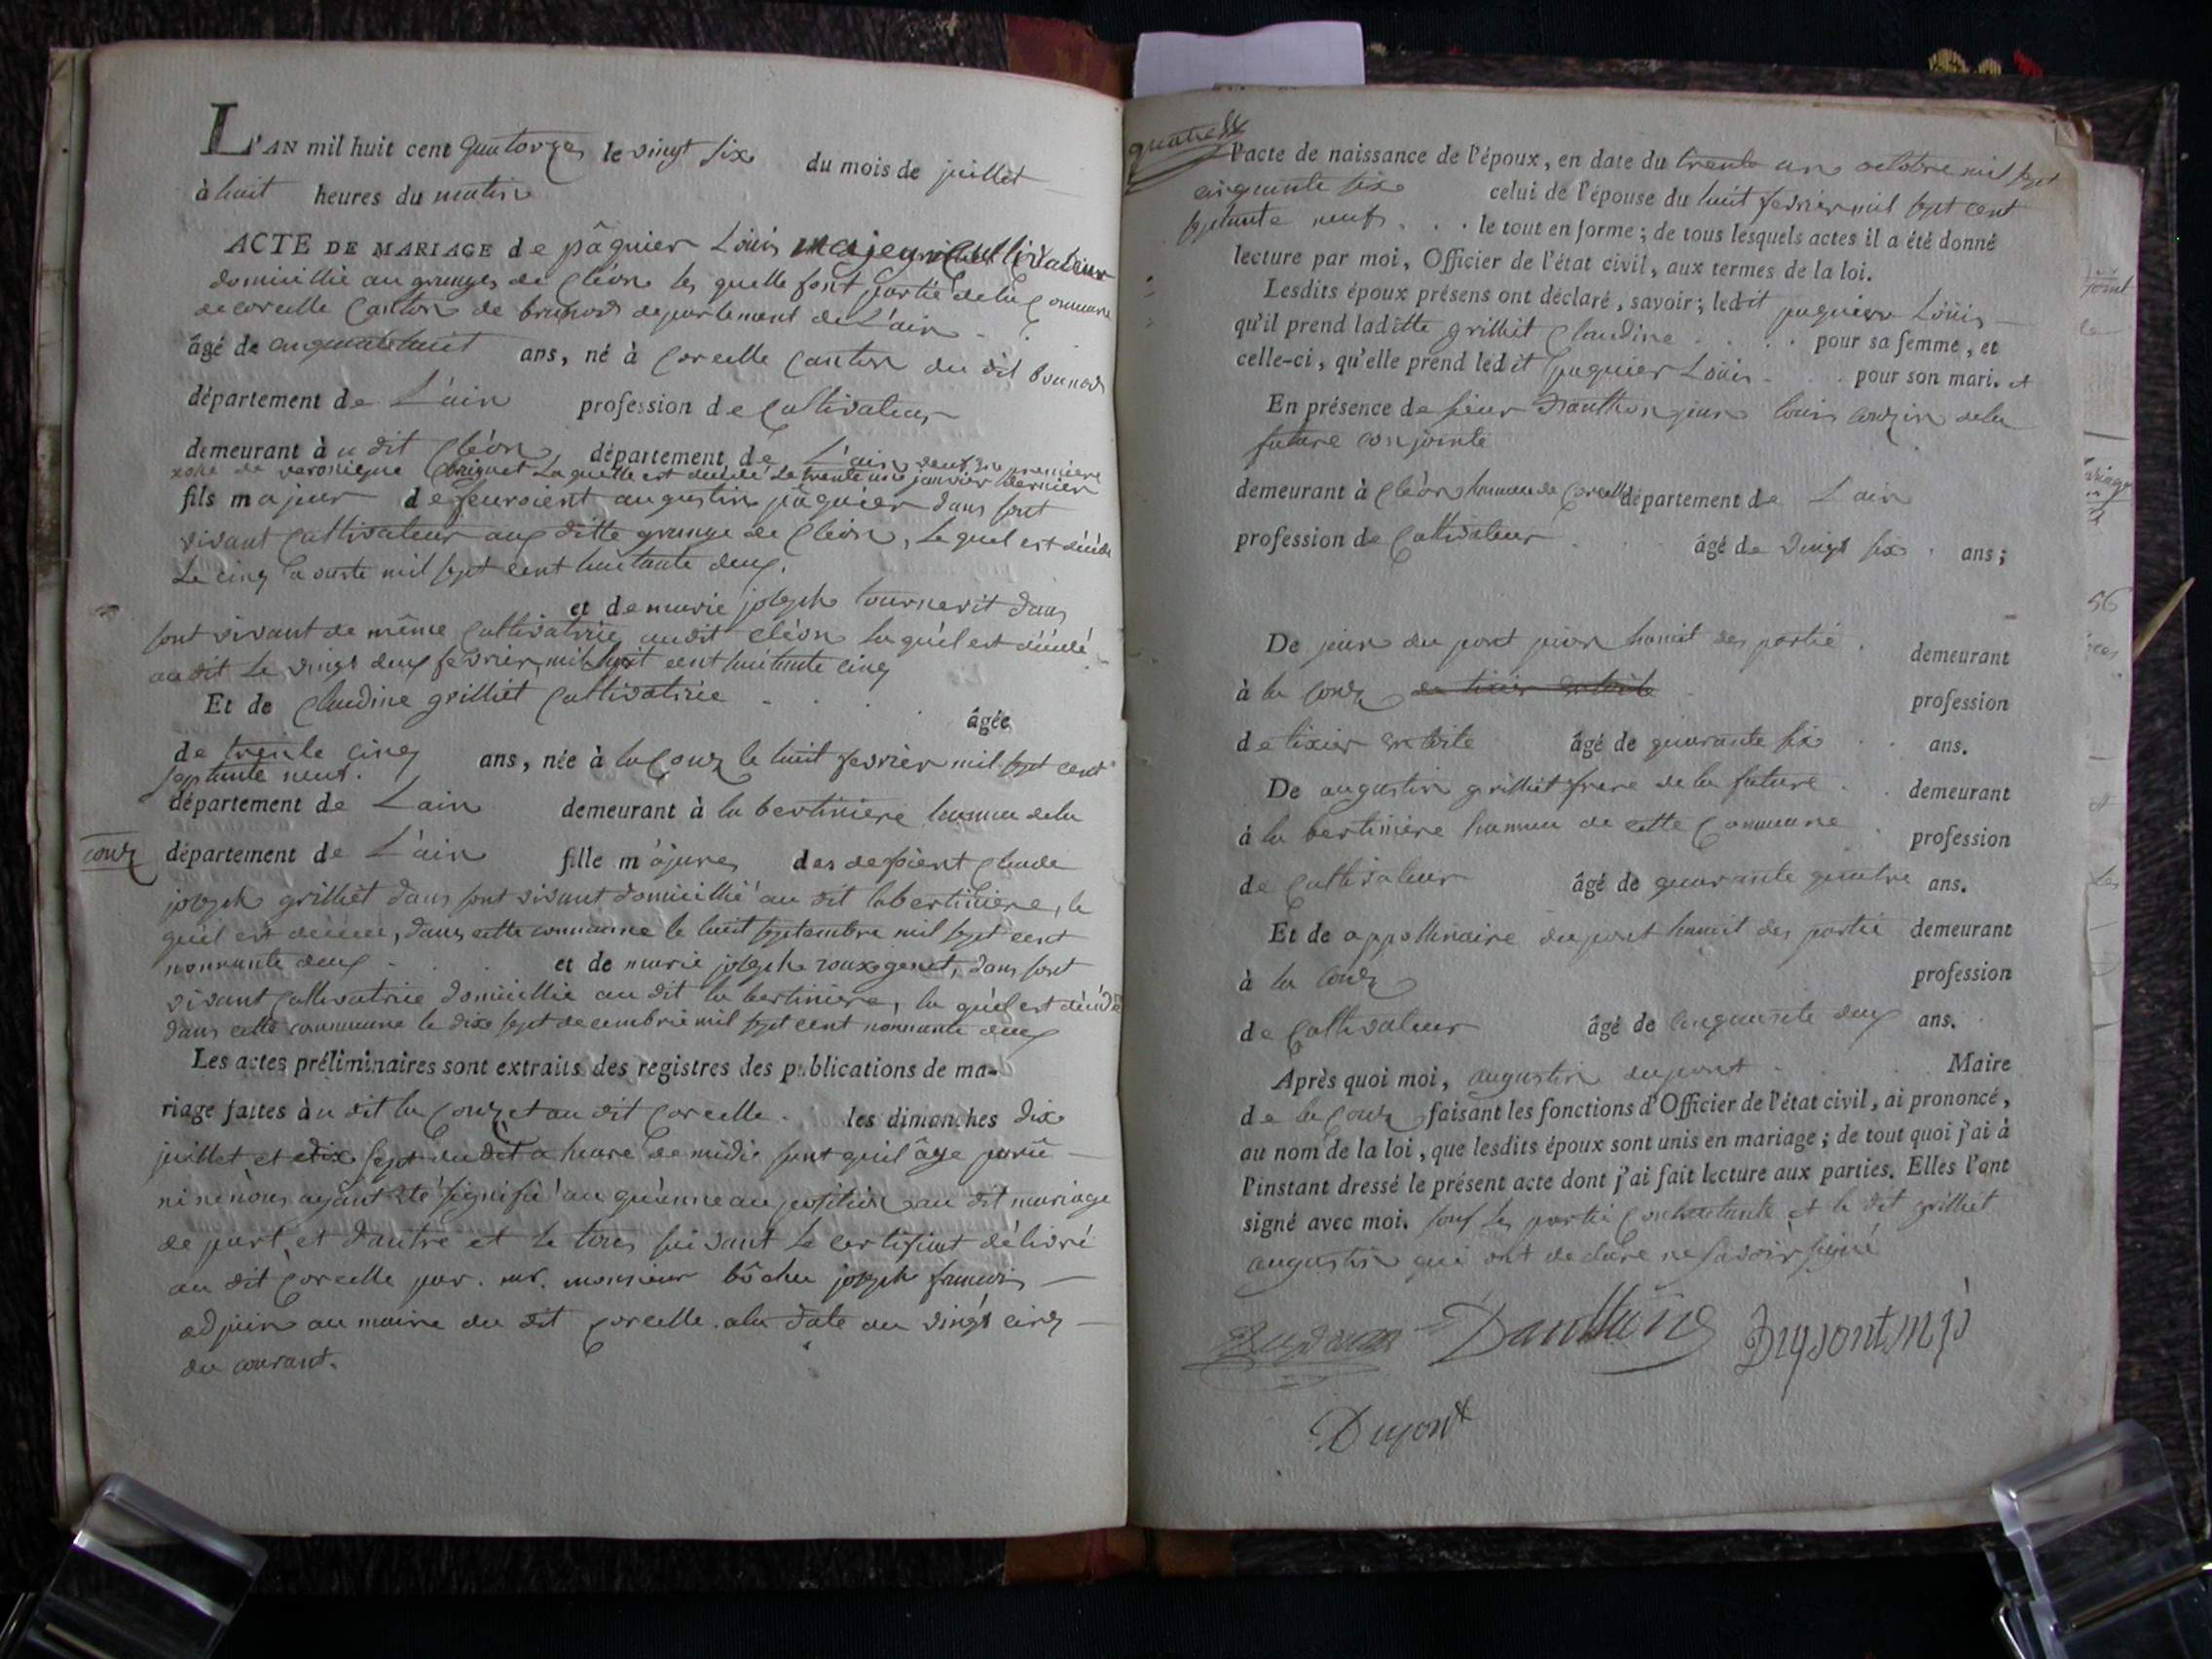 L'AN mil huit cent quatorze le vingt six du mois de juillet
à huit heures du matin
ACTE DE MARIAGE de pâquier Loüis majeur Cultivateur
domicillié au granges de Cléon les quelle font partié de la Commune
de corcelle Canton de brunod departement de L'ain
âgé de cinquante huit ans, né à Corcelle Canton du dit brunod
département de L'ain profession de Cultivateur
demeurant à u dit Cléon département de L'ain veuf en premiere
de veronique Laquelle est décédé Le trente un janvier dernier
fils majeur de augustin pâquier dans sont
vivant Cultivateur aux ditte grange de Cléon, Le quel est décédé
Le cinq a ouste mil sept cent huitante deux.
et de marie joseph tournerit dans
sont vivant de même Cultivatrice audit cléon laquél est décédé
au dit Le vingt deux fevrier mil cent huitante cinq
Et de Claudine grilliet Cultivatrice âgée
de trente cinq ans, née à la Couz le huit fevrier mil sept cent
septante neuf.
département de Lain demeurant à la bertiniere hameau de la
couz département de L'ain fille m'ajure des Claude
joseph grilliet dans sont vivant domicillié au dit labertiniere, le
quél est décédé, dans cette commune le huit septembre mil sept cent
nonnante deux et de marie joseph roux genet, dans sont
vivant Cultivatrice domicillié au dit la bertiniere, la quél est décédé
dans cette commune le dix sept decembre mil sept cent nonnante deux
Les actes préliminaires sont extraits des registres des publications de ma-
riage faites à u dit la Couz et au dit Corcelle. les dimanches dix
juillet et dix sept dudit a heure de midie sans quil âye parû
ni ne nous ayant été signifié au quunne au position au dit mariage
de part et d'autre et le tous suivant Le certificat délivré
au dit Corcelle par. mr. monsieur bôchu joseph francois
adjoin au maire du dit Corcelle. ala date du vingt cinq
du courant.
l'acte de naissance de l'époux, en date du trente un octobre mil sept
cinquante six celui de l'épouse du huit fevrier mil sept cent
septante neuf. le tout en forme; de tous lesquels actes il a été donné
lecture par moi, Officier de l'état civil, aux termes de la loi.
Lesdits époux présens ont déclaré, savoir; ledit paquier Loüis
qu'il prend laditte grilliet Claudine pour sa femme, et
celle-ci, qu'elle prend ledit paquier Loüis pour son mari. et
En présence de sieur Danthon jean louis couzin dela
future conjointe
demeurant à Cléon hameau de Corcelle département de Lain
profession de Cultivateur âgé de vingt six ans;
De jean du pont pion hamit des partié demeurant
à la Couz profession
de tixier en toile âgé de quarante six ans.
De augustin grilliet frere de la future demeurant
à la bertiniere hameau de cette Commune profession
de Cultivateur âgé de quarante quatre ans.
Et de appollinaire du pont hamit des partié demeurant
à la Couz profession
de Cultivateur âgé de cinquante deux ans.
Après quoi moi, augustin dupont Maire
de la Couz faisant les fonctions d'Officier de l'état civil, ai prononcé,
au nom de la loi, que lesdits époux sont unis en mariage; de tout quoi j'ai à
l'instant dressé le présent acte dont j'ai fait lecture aux parties. Elles l'ont
signé avec moi. souf les partié Contratante et le dit grilliet
augustin qui ont declare ne savoir signé
Dupont